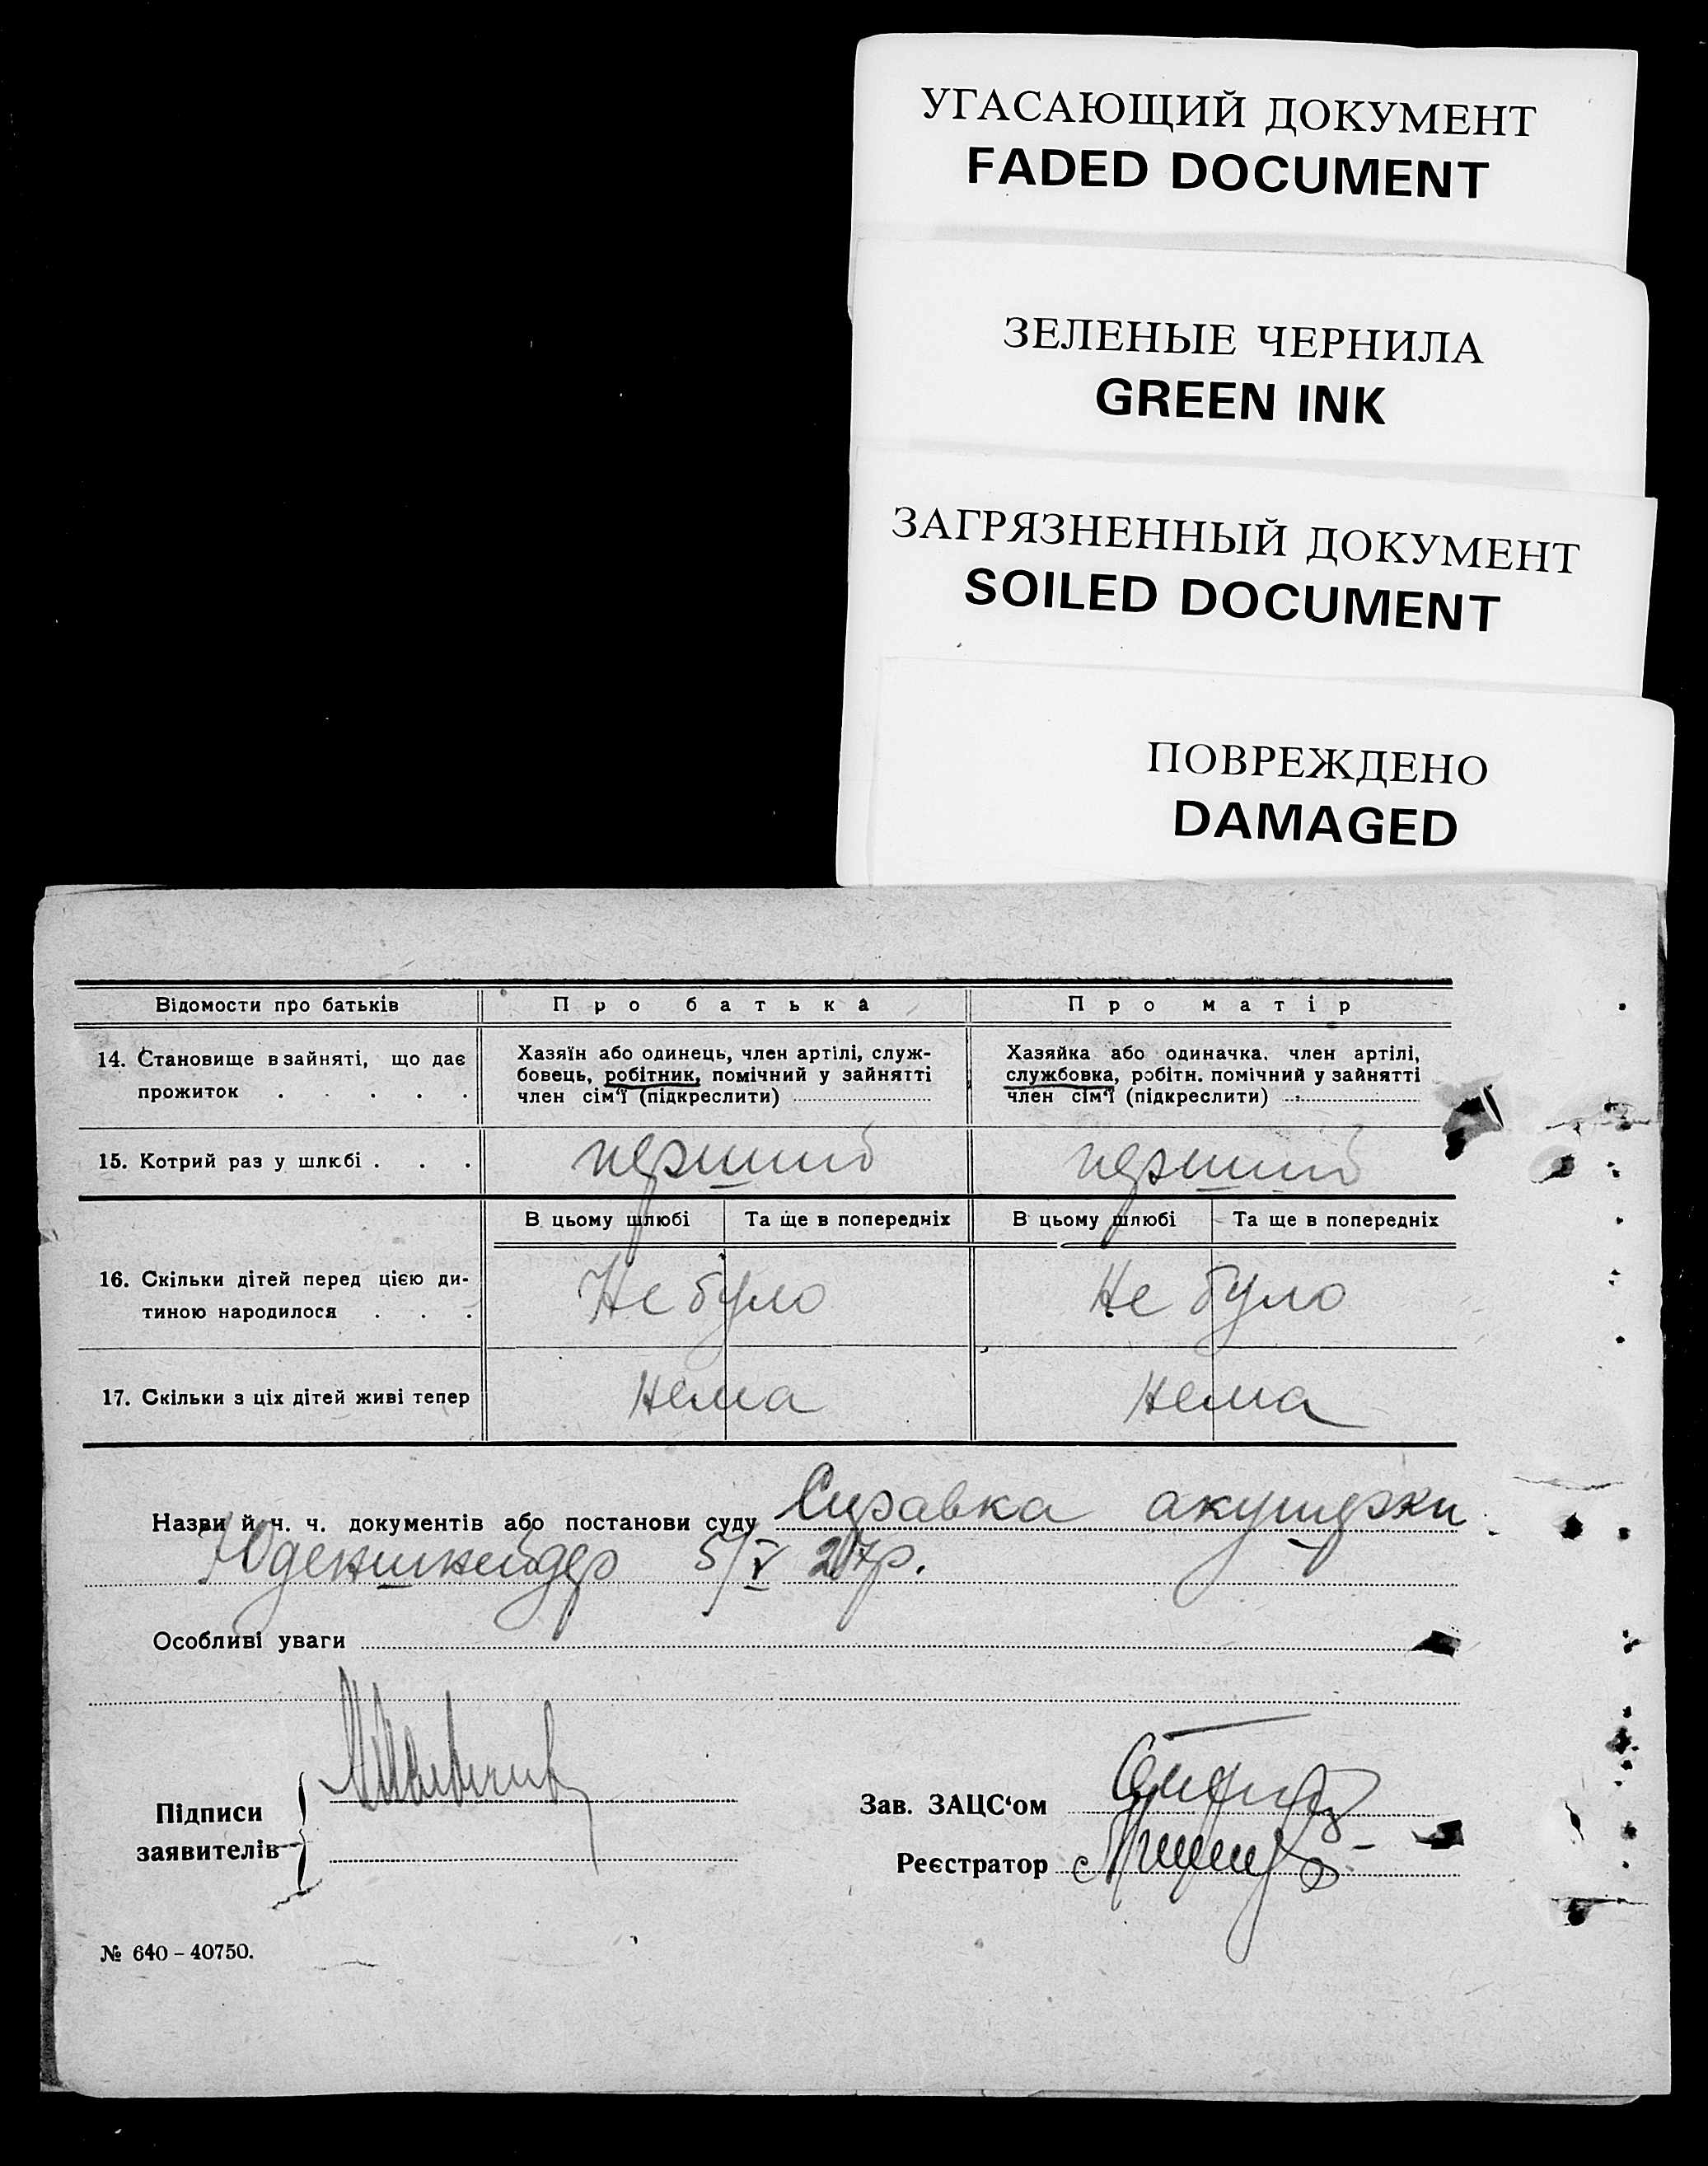 УГАСАЮЩИЙ ДОКУМЕНТ
FADED DOCUMENT
ЗЕЛЕНЫЕ ЧЕРНИЛА
GREEN INK
ЗАГРЯЗНЕННЫЙ ДОКУМЕНТ
SOILED DOCUMENT
ПОВРЕЖДЕНО
DAMAGED
Відомости про батьків Про батька Про матір
14. Становище в зайняті, що дає прожиток . . . . .
Хазяїн або одинець, член артілі, служ-
бовець, робітник, помічний у зайнятті
член сім'ї (підкреслити)
Хазяйка або одиначка, член артілі,
службовка, робітн. помічний у зайнятті
член сім'ї (підкреслити)
15. Котрий раз у шлюбі . . . перший перший
В цьому шлюбі Та ще в попередніх В цьому шлюбі Та ще в попередніх
16. Скільки дітей перед цією ди-
тиною народилося . . . Не було Не було
17. Скільки з ціх дітей живі тепер нема нема
Назви й ч. ч. документів або постанови суду Справка акушерки
Юденшнейдер 5/V 27р.
Особливі уваги
Підписи
заявителів
Зав. ЗАЦС'ом
Реєстратор
№ 640 - 40750.